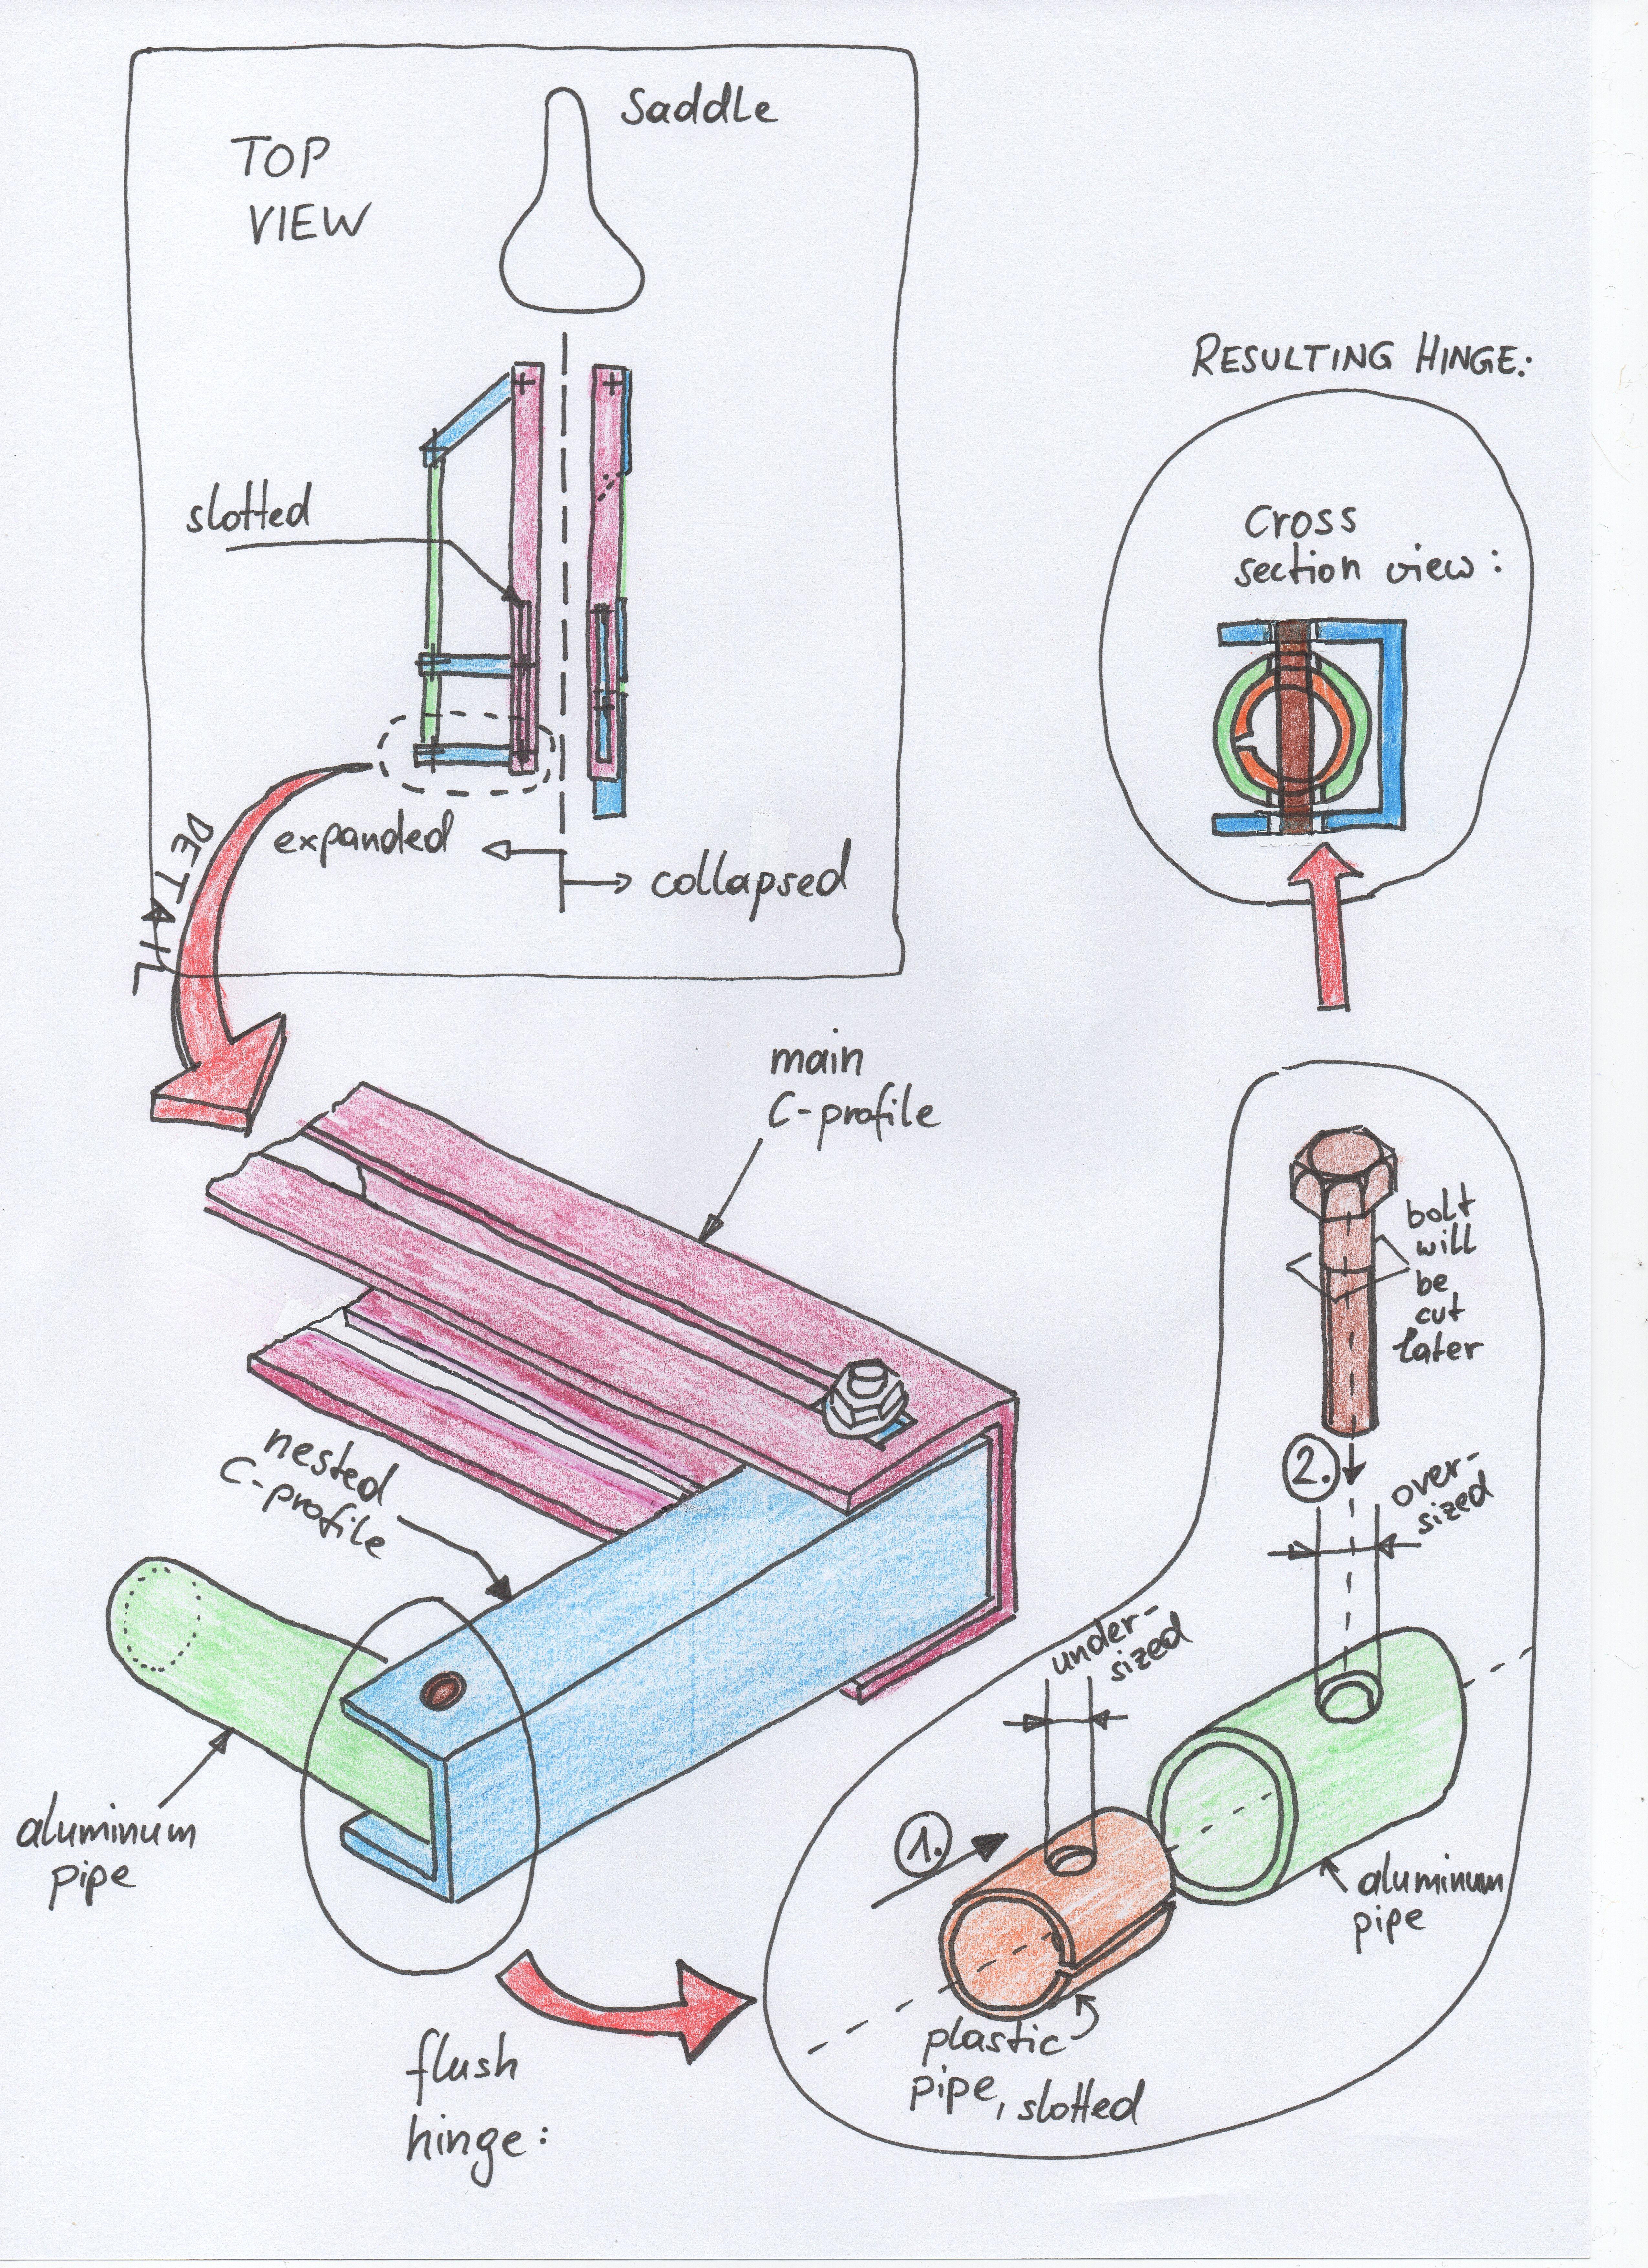 TOP
VIEW
Saddle
slotted
expanded
collapsed
DETAIL
RESULTING HINGE:
Cross
section view:
main
C-profile
nested
C-profile
aluminum
pipe
flush
hinge:
bolt
will
be
cut
later
2.
over-
sized
under-
sized
1.
aluminum
pipe
plastic
pipe, slotted